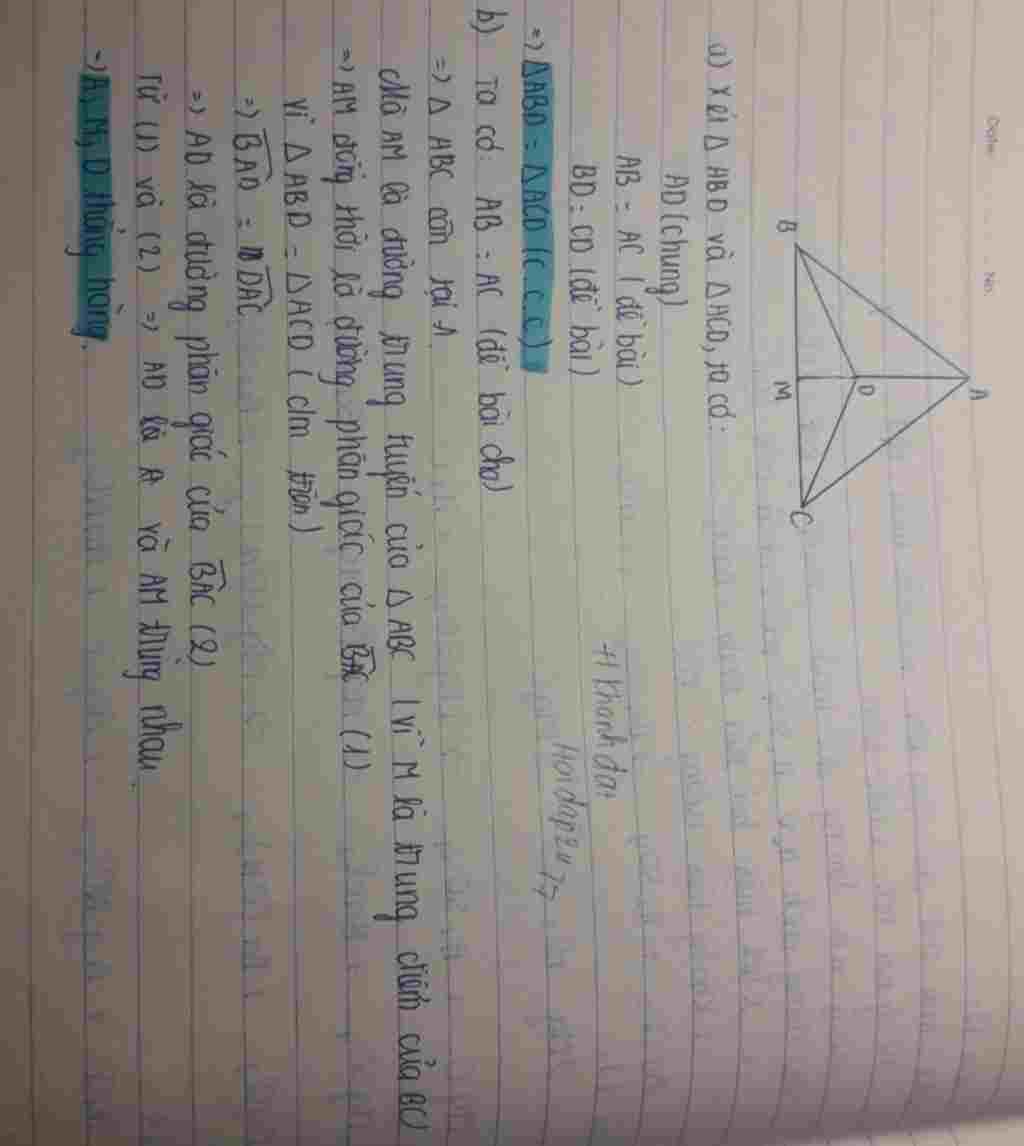 Date No.
A
B
D
M
C
a) Xét ∆ ABD và ∆ACD, ta có:
AD (chung)
AB = AC (đề bài)
BD = CD (đề bài)
=> ∆ABD = ∆ACD (c.c.c)
+1 khanhdat
Hoidap247
b) Ta có: AB = AC (đề bài cho)
=> ∆ ABC cân tại A
Mà AM là đường trung tuyến của ∆ ABC (vì M là trung điểm của BC)
=> AM đồng thời là đường phân giác của BAC (1)
Vì ∆ ABD = ∆ ACD (cm trên)
=> BAD = DAC
=> AD là đường phân giác của BAC (2)
Từ (1) và (2) => AD là A và AM trùng nhau.
=> A, M, D thẳng hàng.